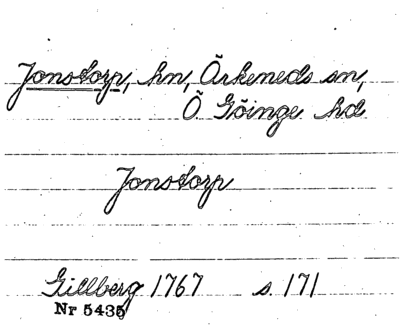 Jonstorp, hn, Örkeneds sn,
Ö Göinge hd
Jonstorp
Gillberg 1767 s. 171
Nr 5435